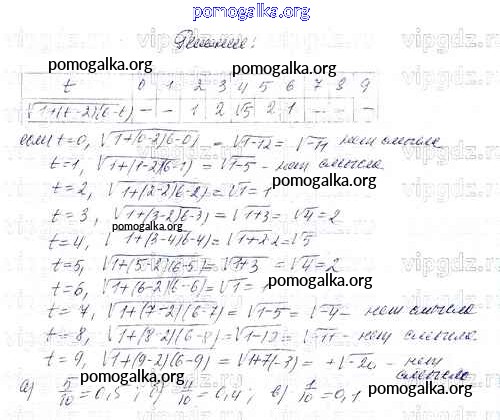 pomogalka.org
Решение:
pomogalka.org
t 0 1 2 3 4 5 6 7 8 9
√1+(t-2)(6-t) - - 1 2 √5 2 1 - - -
если t=0, √1+(0-2)(6-0) = √1-12 = √-11 нет смысла
t=1, √1+(1-2)(6-1) = √1-5 - нет смысла
t=2, √1+(2-2)(6-2) = √1 = 1
pomogalka.org
t=3, √1+(3-2)(6-3) = √1+3 = √4 = 2
pomogalka.org
t=4, √1+(3-4)(6-4) = √1+2·2 = √5
t=5, √1+(5-2)(6-5) = √1+3 = √4 = 2
t=6, √1+(6-2)(6-6) = √1 = 1
pomogalka.org
t=7, √1+(7-2)(6-7) = √1-5 = √-4 - нет смысла
t=8, √1+(8-2)(6-8) = √1-12 = √-11 - нет смысла
t=9, √1+(9-2)(6-9) = √1+7(-3) = +√-20 - нет смысла
а) 5/10 = 0,5; б) 4/10 = 0,4; в) 1/10 = 0,1
pomogalka.org
pomogalka.org